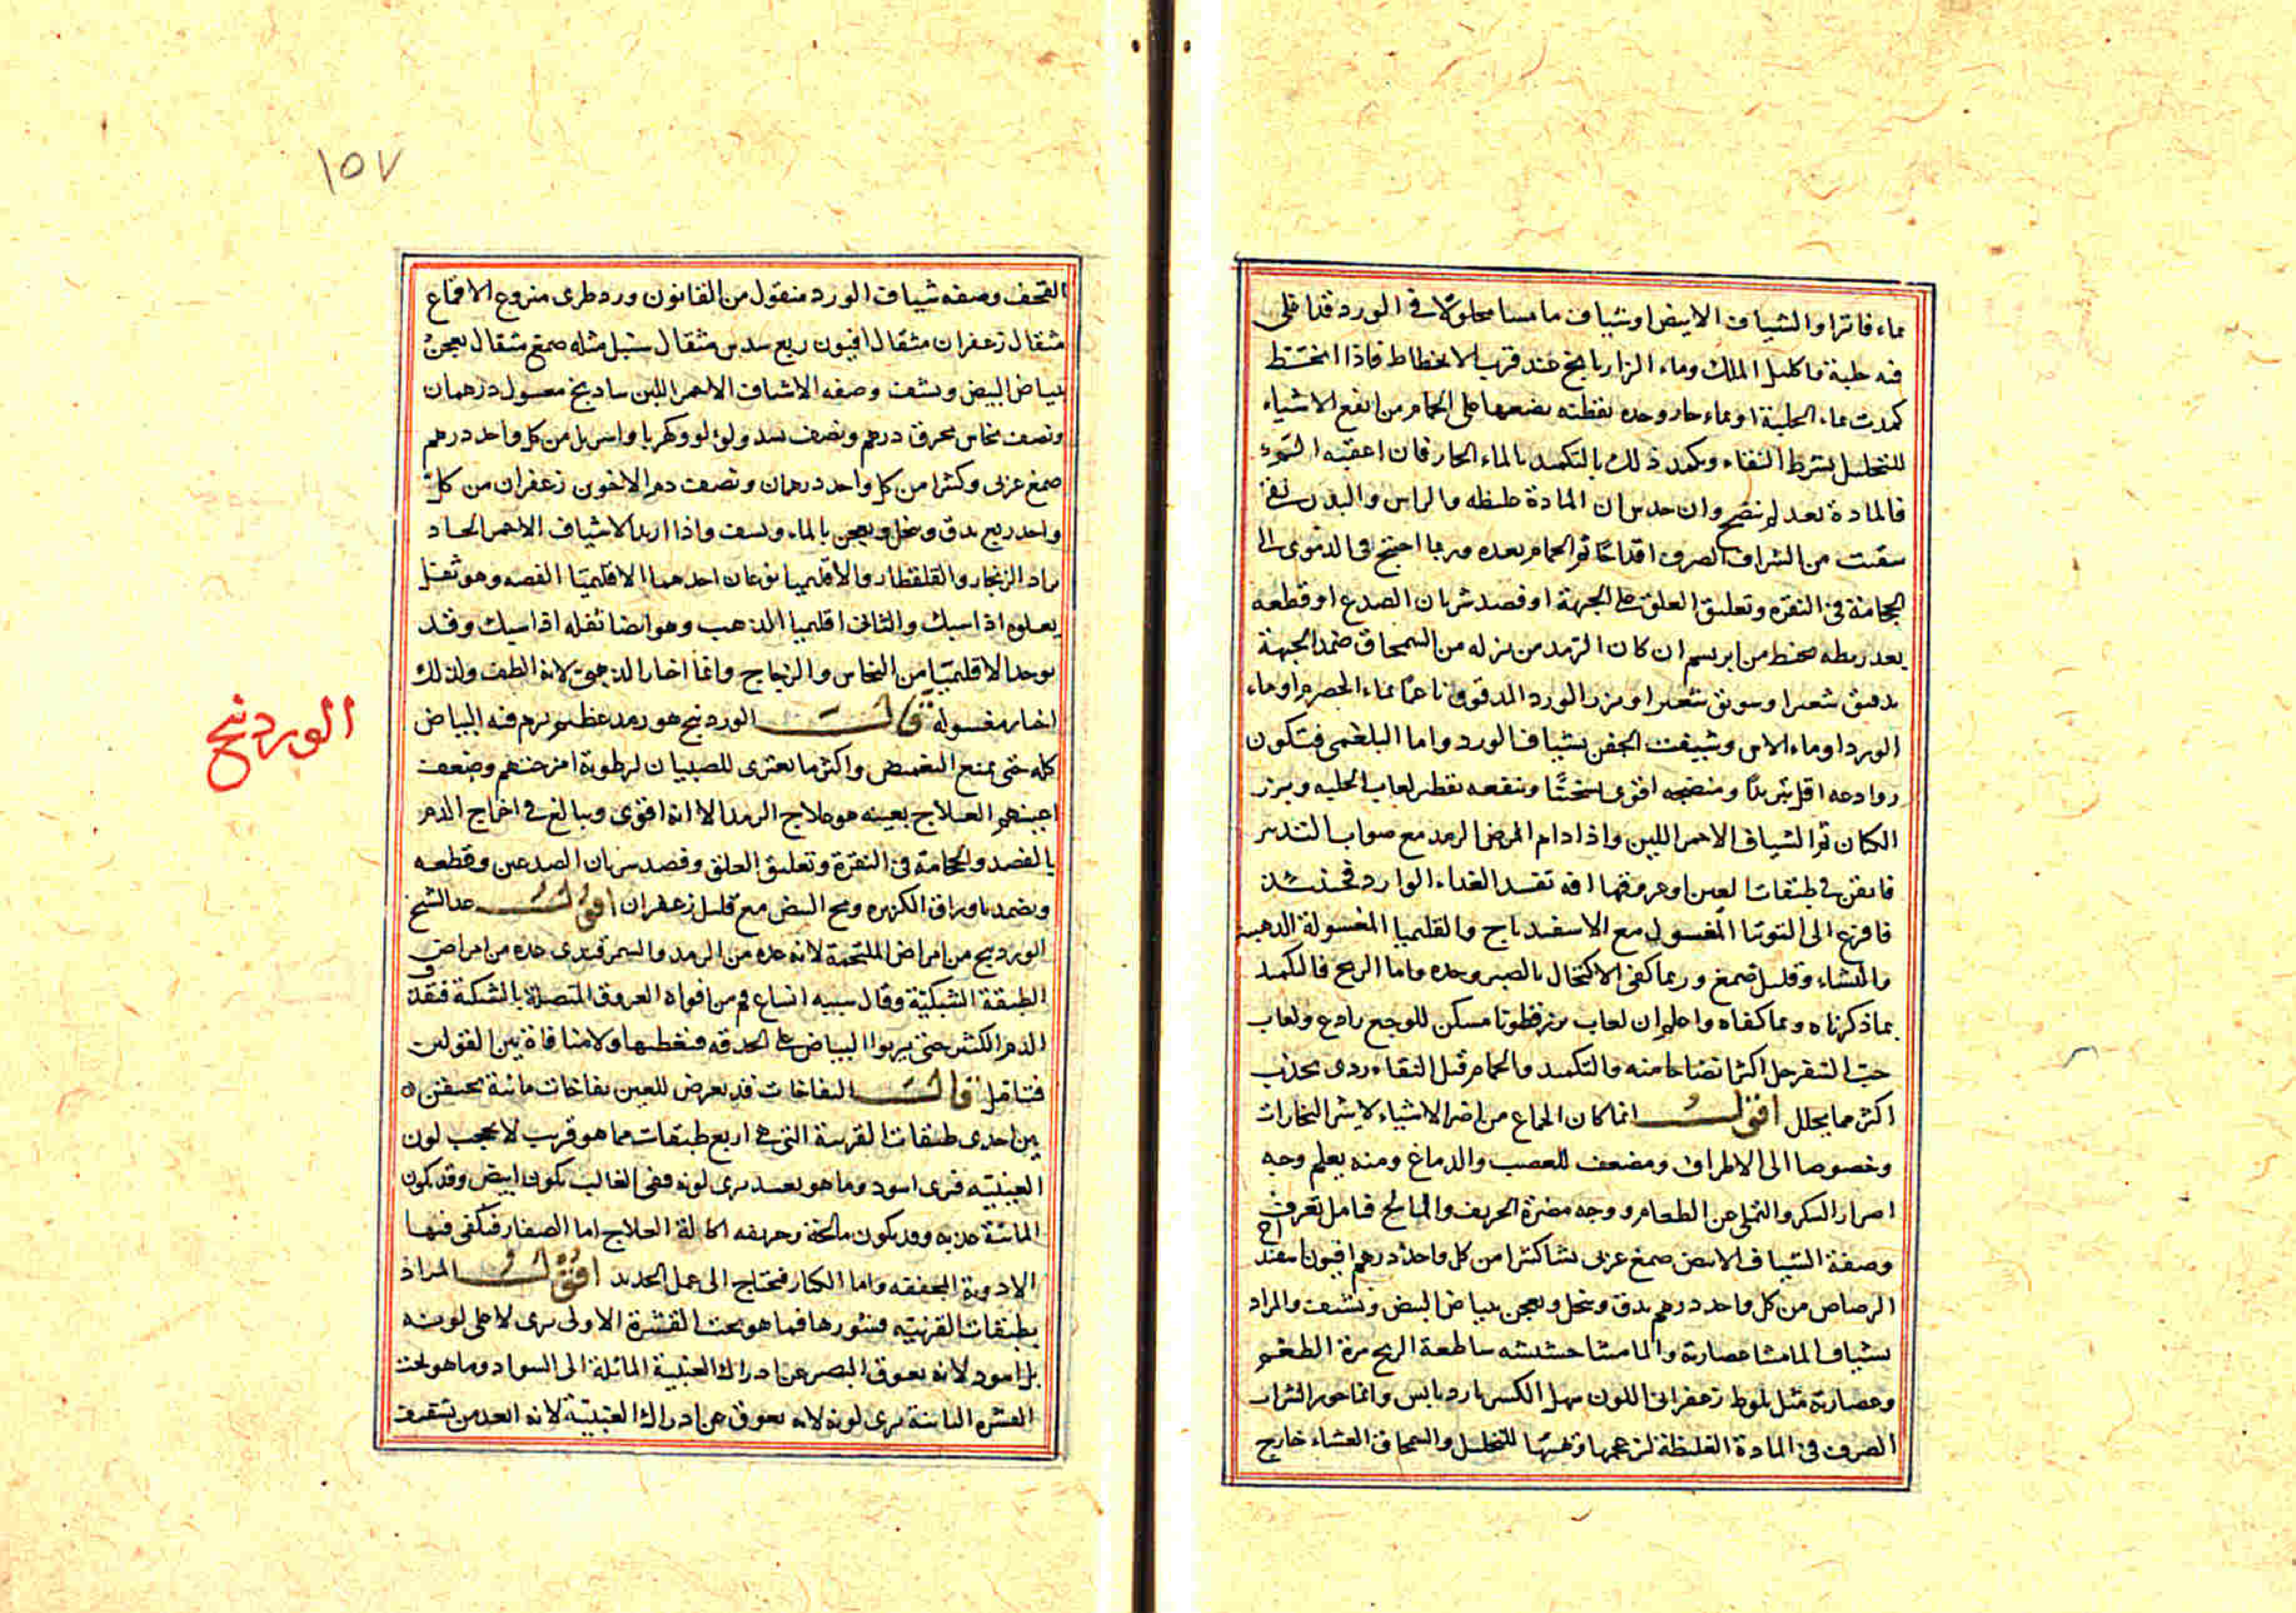 بماء فاترا والشياف الابيض او شياف ماميسا محلولا في الورد قد اغلى
فيه حلبة واكليل الملك وماء الرازيانج عند قرب الانحطاط فاذا انحط
كمدت بماء الحلبة او بماء حار وحده بقطنه بضعها على الحمام من انفع الاشياء
للتحليل بشرط النقاء وكمد ذلك بالتكميد بالماء الحار فان اعقبه
فالمادة بعد لم تنضج وان حدس ان المادة غليظه والراس والبدن نقى
سقيت من الشراب الصرف اقداحا ثم الحمام بعده وربما احتج في الدموى الى
الحجامة في النقره وتعليق العلق على الجبهة او فصد شريان الصدع او قطعه
بعد ربطه بخيط من ابريسم ان كان الرمد من نزله من السمحاق ضمد الجبهة
بدقيق شعير او سويق شعير او بزر الورد المدقوق ناعما بماء الحصرم او ماء
الورد او ماء الاس وشيفت الجفن بشياف الورد واما البلغمى فتكون
روادعه اقل تبريدا ومنضجه اقوى تسخينا وينفعه تقطير لعاب الحلبه وبزر
الكتان ثم الشياف الاحمر اللين واذا دام المرض الرمد مع صواب التدبير
فايقن في طبقات العين او عروقها افه تفسد الغذاء الوارد فحينئذ
فافزع الى التوتيا المغسول مع الاسفيداج والقليميا المغسولة الذهبيه
والنشاء وقليل صمغ وربما كفى الاكتحال بالصبر وحده واما الريح فالتكميد
بما ذكرناه وبما كفاه واعلم ان لعاب بزر قطونا مسكن للوجع رادع ولعاب
حب السفرجل اكثر انضاجا منه والتكميد والحمام قبل النقاء ردى يجذب
اكثر مما يحلل اقول انما كان الجماع من اضر الاشياء لا البخارات
وخصوصا الى الاطراف ومضعف للعصب والدماغ ومنه يعلم وجه
اضرار السكر والتملى من الطعام ووجه مضرة الحريف والمالح فتامل تعرف
وصفة الشياف الابيض صمغ عربى نشا كثيرا من كل واحد درهم افيون اسفيداج
الرصاص من كل واحد درهم يدق وينخل ويعجن ببياض البيض ويشيف والمراد
بشياف الماميثا عصارته والماميثا حشيشه ساطعة الريح مرة الطعم
وعصارته مثل بلوط زعفرانى اللون سهل الكسر بارد يابس وانما جوز الشراب
الصرف في المادة الغليظة وتهيئها للتحليل والسمحاق الغشاء خارج
١٥٧
القحف وصفه شياف الورد منقول من القانون ورد طرى منزوع الاقماع
مثقال زعفران مثقال افيون ربع سدس مثقال سنبل مثله صمغ مثقال يعجن
ببياض البيض ويشيف وصفه الاشياف الاحمر اللين سادنج مغسول درهمان
ونصف نحاس محرق درهم ونصف بسد ولؤلؤ وكهربا من كل واحد درهم
صمغ عربى وكثيرا من كل واحد درهمان ونصف دم الاخوين زعفران من كل
واحد ربع يدق وينخل ويعجن بالماء ويشيف واذا اريد الاشياف الاحمر الحاد
يزاد الزنجار والقلقطار والاقليميا نوعان احدهما الاقليميا الفضه وهو ثفل
يعلوه اذا سبك والثانى اقليميا الذهب وهو ايضا ثفله اذا سبك وقد
يوجد الاقليميا من النحاس والزجاج وانما اختار الذهبى لانه الطف ولذلك
اختار مغسوله قال الوردينج هو رمد عظيم يرم فيه البياض
كله حتى يمنع التغميض واكثر ما يعترى للصبيان لرطوبة امزجتهم وضعف
اعينهم العلاج بعينه هو علاج الرمد الا انه اقوى ويبالغ في اخراج الدم
بالفصد والحجامة في النقرة وتعليق العلق وفصد شريان الصدغين وقطعه
ويضمد باوراق الكزبره ومح البيض مع قليل زعفران اقول عد الشيخ
الوردينج من امراض الملتحمة لانه عده من الرمد والسمرقندى عده من امراض
الطبقة الشبكية وقال سببه اتساع فم من افواه العروق المتصلة بالشبكة فتقذف
الدم الكثير حتى يربوا البياض على الحدقه فتغطيها ولا منافاة بين القولين
فتامل قال النفاخات قد يعرض للعين نفاخات مائية تحتقن
بين احدى طبقات القرنية التى هي اربع طبقات مما هو قرب لا يحجب لون
العنبيه فترى اسود وما هو بعيد يرى لونه ففى الغالب يكون ابيض وقد يكون
المائية عذبه وقد يكون مالحة وحريفه اكالة العلاج اما الصغار فيكفى فيها
الادوية المجففه واما الكبار فتحتاج الى عمل الحديد اقول المراد
بطبقات القرنيه قشورها فما هو تحت القشرة الاولى يرى لا على لونه
بل اسود لانه لا يعوق البصر عن ادراك العنبية المائلة الى السواد وما هو تحت
القشره الثانية يرى لونه لانه يعوق عن ادراك العنبية لانه ابعد من تشفيف
الوردينج